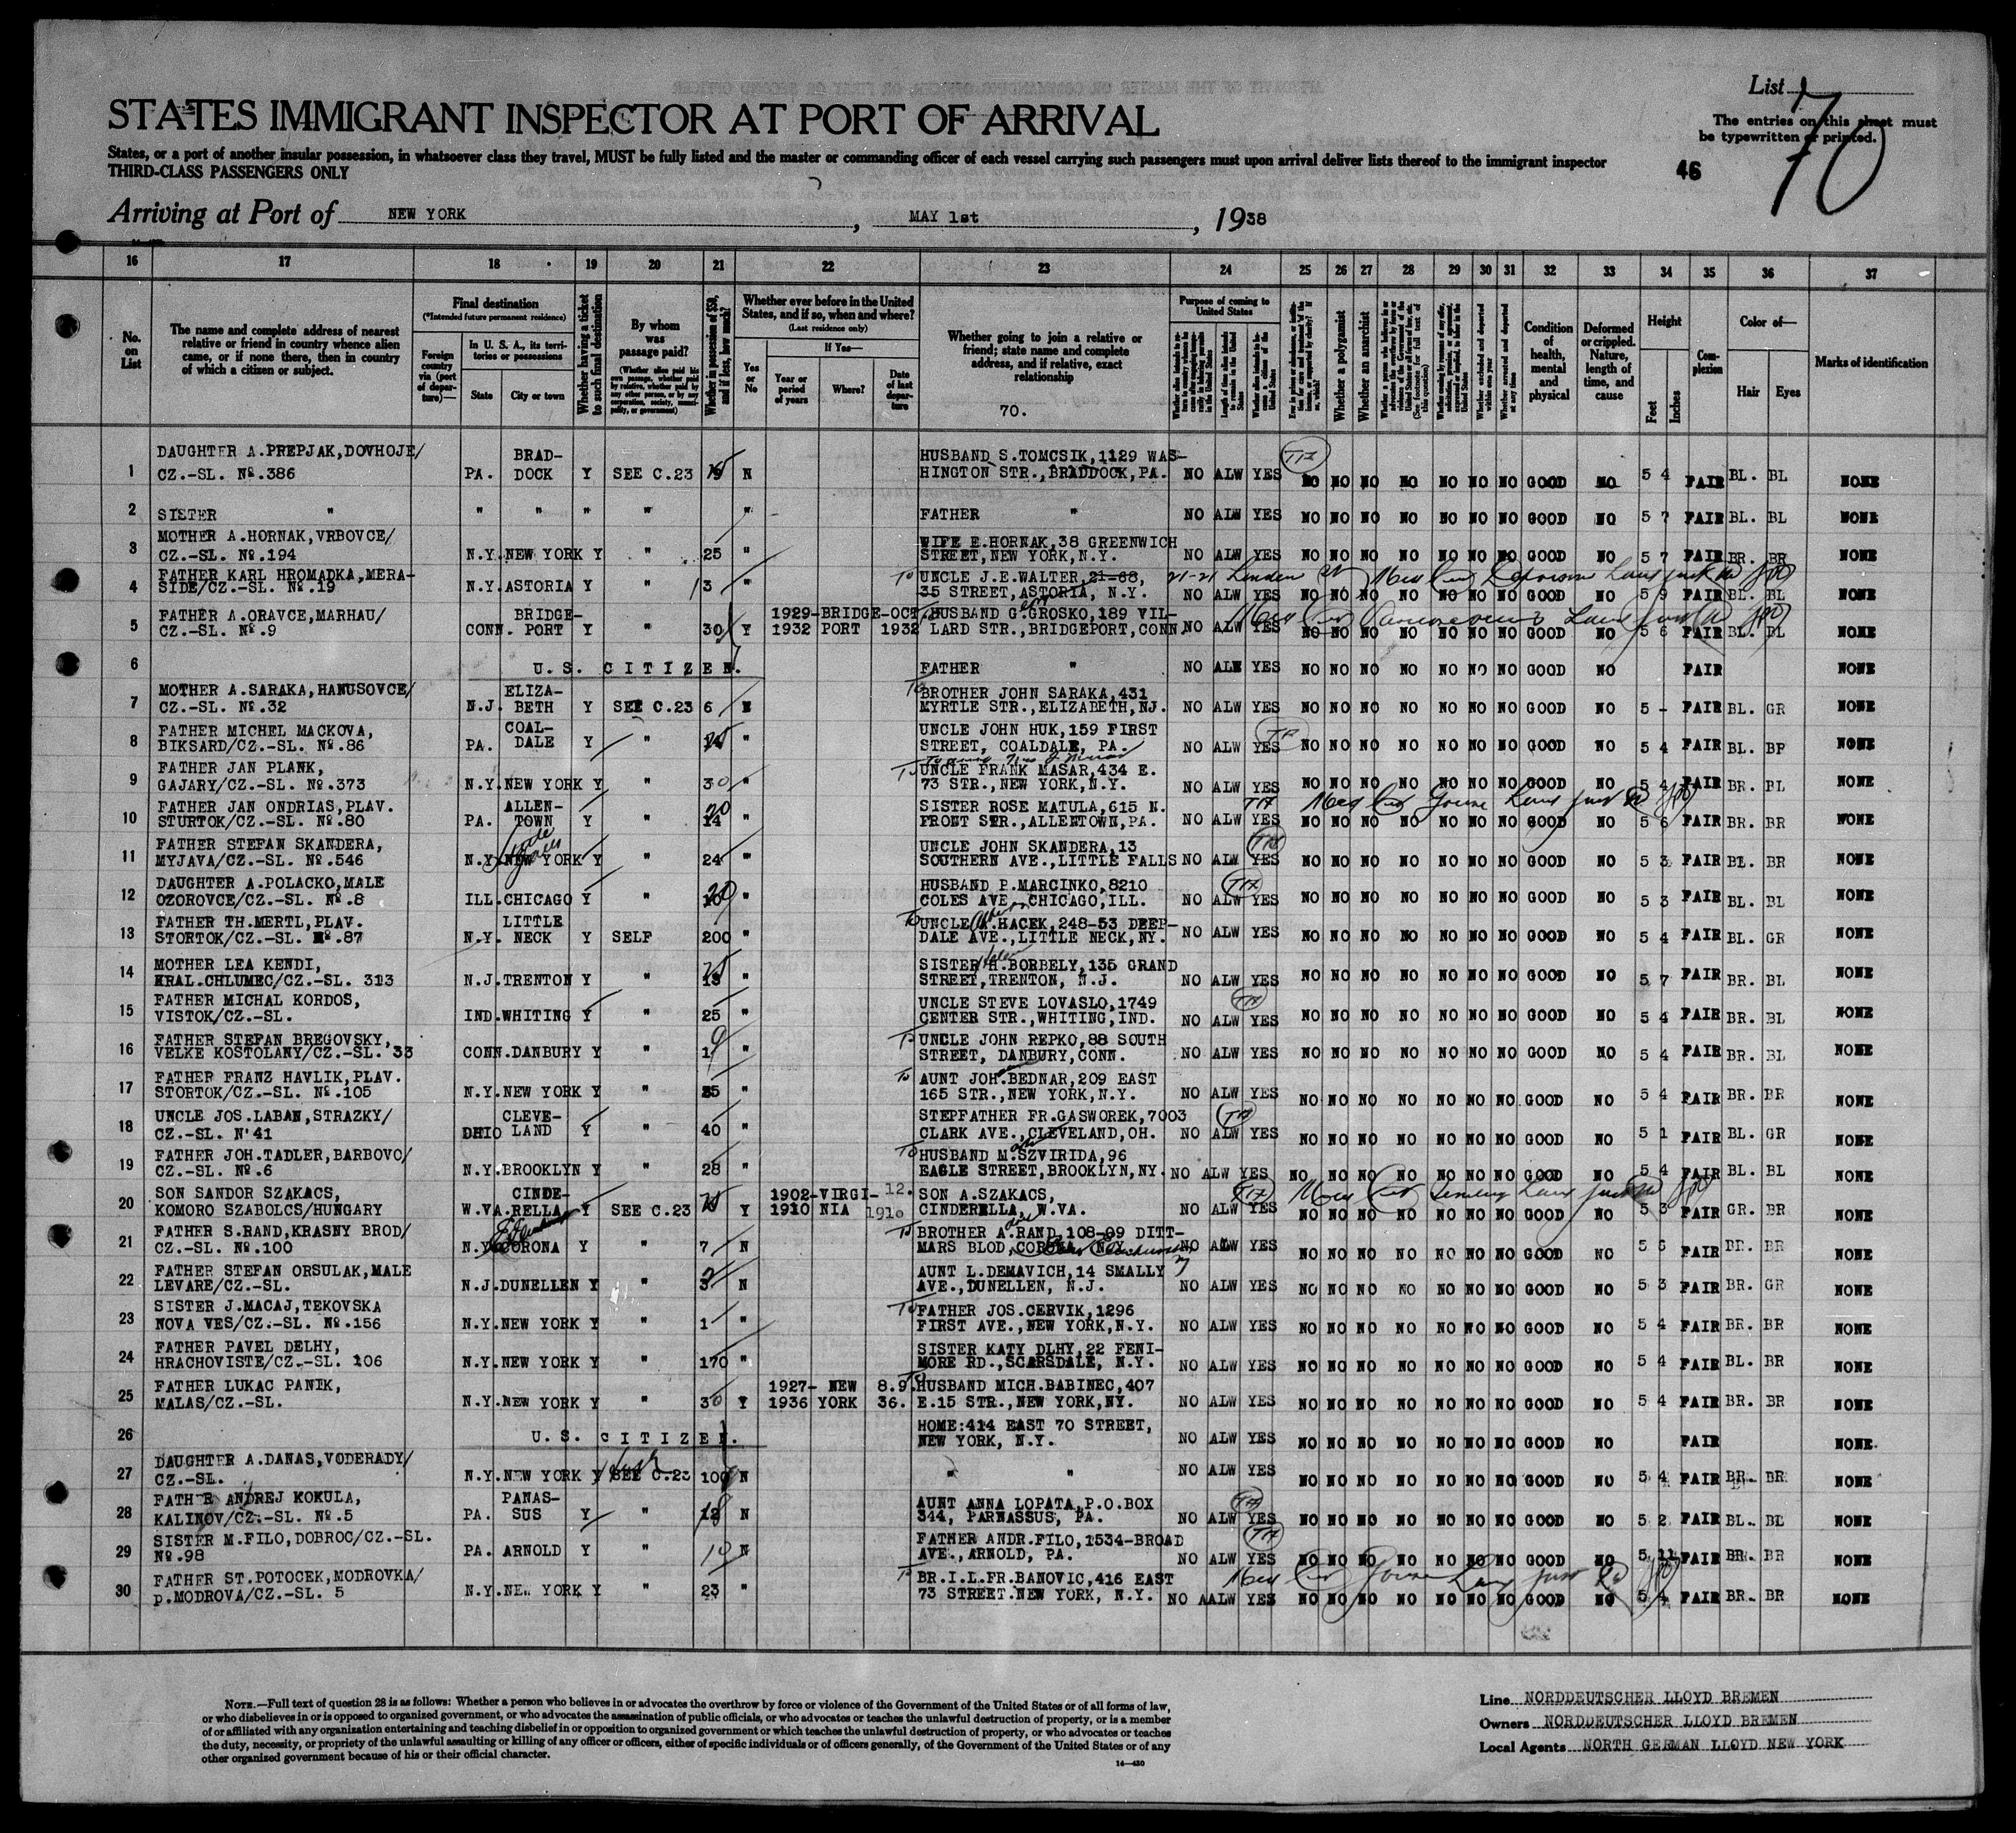 List 70
STATES IMMIGRANT INSPECTOR AT PORT OF ARRIVAL
The entries on this sheet must
be typewritten or printed.
States, or a port of another insular possession, in whatsoever class they travel, MUST be fully listed and the master or commanding officer of each vessel carrying such passengers must upon arrival deliver lists thereof to the immigrant inspector
THIRD-CLASS PASSENGERS ONLY
46
Arriving at Port of NEW YORK, MAY 1st, 1938
16 17 18 19 20 21 22 23 24 25 26 27 28 29 30 31 32 33 34 35 36 37
No. on List
The name and complete address of nearest
relative or friend in country whence alien
came, or if none there, then in country
of which a citizen or subject.
Final destination
(*Intended future permanent residence)
Foreign country via (port of departure)—
In U. S. A., its territories or possessions
State
City or town
Whether having a ticket to such final destination
By whom was passage paid?
(Whether alien paid his own passage, whether paid by relative, whether paid by any other person, or by any corporation, society, municipality, or government)
Whether in possession of $50, and if less, how much?
Whether ever before in the United States, and if so, when and where?
(Last residence only)
Yes or No
If Yes—
Year or period of years
Where?
Date of last departure
Whether going to join a relative or
friend; state name and complete
address, and if relative, exact
relationship
70.
Purpose of coming to United States
Length of time alien intends to remain in the United States
Whether a polygamist
Whether an anarchist
Whether arrested and deported at any time
Condition of health, mental and physical
Deformed or crippled. Nature, length of time, and cause
Height
Feet
Inches
Complexion
Color of—
Hair
Eyes
Marks of identification
1 DAUGHTER A.PREPJAK,DOVHOJE/ BRAD- HUSBAND S.TOMCSIK,1129 WAS-
CZ.-SL. No.386 PA. DOCK Y SEE C.23 N HINGTON STR.,BRADDOCK,PA. NO ALW YES NO NO NO NO NO NO NO GOOD NO 5 4 FAIR BL. BL NONE
2 SISTER " " " " " " FATHER " NO ALW YES NO NO NO NO NO NO NO GOOD NO 5 7 FAIR BL. BL NONE
3 MOTHER A.HORNAK,VRBOVCE/ WIFE E.HORNAK,38 GREENWICH
CZ.-SL. No.194 N.Y. NEW YORK Y " 25 " STREET,NEW YORK,N.Y. NO ALW YES NO NO NO NO NO NO NO GOOD NO 5 7 FAIR BR. BR NONE
4 FATHER KARL HROMADKA,MERA- To UNCLE J.E.WALTER,21-68, 21-21
SIDE/CZ.-SL. No.19 N.Y. ASTORIA Y " 13 " 35 STREET,ASTORIA, N.Y. NO ALW YES NO NO NO NO NO NO NO GOOD NO 5 9 FAIR BL. BL NONE
5 FATHER A.ORAVCE,MARHAU/ BRIDGE- 1929-BRIDGE-OCT. HUSBAND G.GROSKO,189 VIL-
CZ.-SL. No.9 CONN. PORT Y " 30 Y 1932 PORT 1932 LARD STR.,BRIDGEPORT,CONN. NO ALW YES NO NO NO NO NO NO NO GOOD NO 5 6 FAIR BL. BL NONE
6 U.S. CITIZEN. FATHER " NO ALW YES NO NO NO NO NO NO NO GOOD NO FAIR NONE
7 MOTHER A.SARAKA,HANUSOVCE/ ELIZA- To BROTHER JOHN SARAKA,431
CZ.-SL. No.32 N.J. BETH Y SEE C.23 6 N MYRTLE STR.,ELIZABETH,NJ. NO ALW YES NO NO NO NO NO NO NO GOOD NO 5 - FAIR BL. GR NONE
8 FATHER MICHEL MACKOVA, COAL- UNCLE JOHN HUK,159 FIRST
BIKSARD/CZ.-SL. No.86 PA. DALE Y " " STREET, COALDALE, PA. NO ALW YES NO NO NO NO NO NO NO GOOD NO 5 4 FAIR BL. NONE
9 FATHER JAN PLANK, To UNCLE FRANK MASAR,434 E.
GAJARY/CZ.-SL. No.373 N.Y. NEW YORK Y " 30 " 73 STR.,NEW YORK,N.Y. NO ALW YES NO NO NO NO NO NO NO GOOD NO 5 4 FAIR BR. BL NONE
10 FATHER JAN ONDRIAS,PLAV. ALLEN- 20 SISTER ROSE MATULA,615 N.
STURTOK/CZ.-SL. No.80 PA. TOWN Y " 14 " FRONT STR.,ALLENTOWN,PA. NO ALW YES NO NO NO NO NO NO NO GOOD NO 5 6 FAIR BR. BR NONE
11 FATHER STEFAN SKANDERA, UNCLE JOHN SKANDERA,13
MYJAVA/CZ.-SL. No.546 N.Y. NEW YORK Y " 24 " SOUTHERN AVE.,LITTLE FALLS NO ALW YES NO NO NO NO NO NO NO GOOD NO 5 3 FAIR BL. BR NONE
12 DAUGHTER A.POLACKO,MALE 20 HUSBAND P.MARCINKO,8210
OZOROVCE/CZ.-SL. No.8 ILL. CHICAGO Y " 10 " COLES AVE.,CHICAGO,ILL. NO ALW YES NO NO NO NO NO NO NO GOOD NO 5 3 FAIR BL. BL NONE
13 FATHER TH.MERTL,PLAV. LITTLE To UNCLE A.HACEK,248-53 DEEP-
STORTOK/CZ.-SL. No.87 N.Y. NECK Y SELF 200 " DALE AVE.,LITTLE NECK,NY. NO ALW YES NO NO NO NO NO NO NO GOOD NO 5 4 FAIR BL. GR NONE
14 MOTHER LEA KENDI, SISTER H.BORBELY,135 GRAND
KRAL.CHLUMEC/CZ.-SL. 313 N.J. TRENTON Y " " STREET,TRENTON, N.J. NO ALW YES NO NO NO NO NO NO NO GOOD NO 5 7 FAIR BR. BL NONE
15 FATHER MICHAL KORDOS, UNCLE STEVE LOVASLO,1749
VISTOK/CZ.-SL. IND. WHITING Y " 25 " CENTER STR.,WHITING,IND. NO ALW YES NO NO NO NO NO NO NO GOOD NO 5 4 FAIR BR. BL NONE
16 FATHER STEFAN BREGOVSKY, To UNCLE JOHN REPKO,88 SOUTH
VELKE KOSTOLANY/CZ.-SL. 33 CONN. DANBURY Y " " STREET, DANBURY,CONN. NO ALW YES NO NO NO NO NO NO NO GOOD NO 5 4 FAIR BR. BL NONE
17 FATHER FRANZ HAVLIK,PLAV. To AUNT JOH.BEDNAR,209 EAST
STORTOK/CZ.-SL. No.105 N.Y. NEW YORK Y " " 165 STR.,NEW YORK,N.Y. NO ALW YES NO NO NO NO NO NO NO GOOD NO 5 4 FAIR BR. BR NONE
18 UNCLE JOS.LABAN,STRAZKY/ CLEVE- STEPFATHER FR.GASWOREK,7003
CZ.-SL. N'41 OHIO LAND Y " 40 " CLARK AVE.,CLEVELAND,OH. NO ALW YES NO NO NO NO NO NO NO GOOD NO 5 1 FAIR BL. GR NONE
19 FATHER JOH.TADLER,BARBOVO/ To HUSBAND M.SZVIRIDA,96
CZ.-SL. No.6 N.Y. BROOKLYN Y " 28 " EAGLE STREET,BROOKLYN,NY. NO ALW YES NO NO NO NO NO NO NO GOOD NO 5 4 FAIR BL. BL NONE
20 SON SANDOR SZAKACS, CINDE- 1902-VIRGI- 12. SON A.SZAKACS,
KOMORO SZABOLCS/HUNGARY W.VA. RELLA Y SEE C.23 Y 1910 NIA 1910 CINDERELLA, W.VA. NO ALW YES NO NO NO NO NO NO NO GOOD NO 5 3 FAIR GR. BR NONE
21 FATHER S.RAND,KRASNY BROD/ To BROTHER A.RAND,108-09 DITT-
CZ.-SL. No.100 N.Y. CORONA Y " 7 N MARS BLOD,CORONA, N.Y. NO ALW YES NO NO NO NO NO NO NO GOOD NO 5 6 FAIR BR. BR NONE
22 FATHER STEFAN ORSULAK,MALE AUNT L.DEMAVICH,14 SMALLY
LEVARE/CZ.-SL. N.J. DUNELLEN Y " N AVE.,DUNELLEN, N.J. NO ALW YES NO NO NO NO NO NO NO GOOD NO 5 3 FAIR BR. GR NONE
23 SISTER J.MACAJ,TEKOVSKA To FATHER JOS.CERVIK,1296
NOVA VES/CZ.-SL. No.156 N.Y. NEW YORK Y " 1 " FIRST AVE.,NEW YORK,N.Y. NO ALW YES NO NO NO NO NO NO NO GOOD NO 5 4 FAIR BR. BR NONE
24 FATHER PAVEL DELHY, SISTER KATY DLHY,22 FENI-
HRACHOVISTE/CZ.-SL. 106 N.Y. NEW YORK Y " 170 " MORE RD.,SCARSDALE, N.Y. NO ALW YES NO NO NO NO NO NO NO GOOD NO 5 4 FAIR BL. BR NONE
25 FATHER LUKAC PANIK, 1927- NEW 8.9. To HUSBAND MICH.BABINEC,407
MALAS/CZ.-SL. N.Y. NEW YORK Y " 30 Y 1936 YORK 36. E.15 STR.,NEW YORK,NY. NO ALW YES NO NO NO NO NO NO NO GOOD NO 5 4 FAIR BR. BR NONE
26 HOME:414 EAST 70 STREET,
U.S. CITIZEN. NEW YORK, N.Y. NO ALW YES NO NO NO NO NO NO NO GOOD NO FAIR NONE.
27 DAUGHTER A.DANAS,VODERADY/
CZ.-SL. N.Y. NEW YORK Y SEE C.23 100 N " " NO ALW YES NO NO NO NO NO NO NO GOOD NO 5 4 FAIR BR. BR NONE
28 FATHER ANDREJ KOKULA, PANAS- AUNT ANNA LOPATA,P.O.BOX
KALINOV/CZ.-SL. No.5 PA. SUS Y " N 344, PARNASSUS, PA. NO ALW YES NO NO NO NO NO NO NO GOOD NO 5 2 FAIR BL. BL NONE
29 SISTER M.FILO,DOBROC/CZ.-SL. FATHER ANDR.FILO,1534-BROAD
No.98 PA. ARNOLD Y " 10 N AVE.,ARNOLD, PA. NO ALW YES NO NO NO NO NO NO NO GOOD NO 5 11 FAIR BR. BR NONE
30 FATHER ST.POTOCEK,MODROVKA/ To BR.I.L.FR.BANOVIC,416 EAST
p.MODROVA/CZ.-SL. 5 N.Y. NEW YORK Y " 23 " 73 STREET.NEW YORK, N.Y. NO AALW YES NO NO NO NO NO NO NO GOOD NO 5 4 FAIR BR. BR NONE
NOTE.—Full text of question 28 is as follows: Whether a person who believes in or advocates the overthrow by force or violence of the Government of the United States or of all forms of law,
or who disbelieves in or is opposed to organized government, or who advocates the assassination of public officials, or who advocates or teaches the unlawful destruction of property, or is a member
of or affiliated with any organization entertaining and teaching disbelief in or opposition to organized government or which teaches the unlawful destruction of property, or who advocates or teaches
the duty, necessity, or propriety of the unlawful assaulting or killing of any officer or officers, either of specific individuals or of officers generally, of the Government of the United States or of any
other organized government because of his or their official character.
14—430
Line NORDDEUTSCHER LLOYD BREMEN
Owners NORDDEUTSCHER LLOYD BREMEN
Local Agents NORTH GERMAN LLOYD NEW YORK